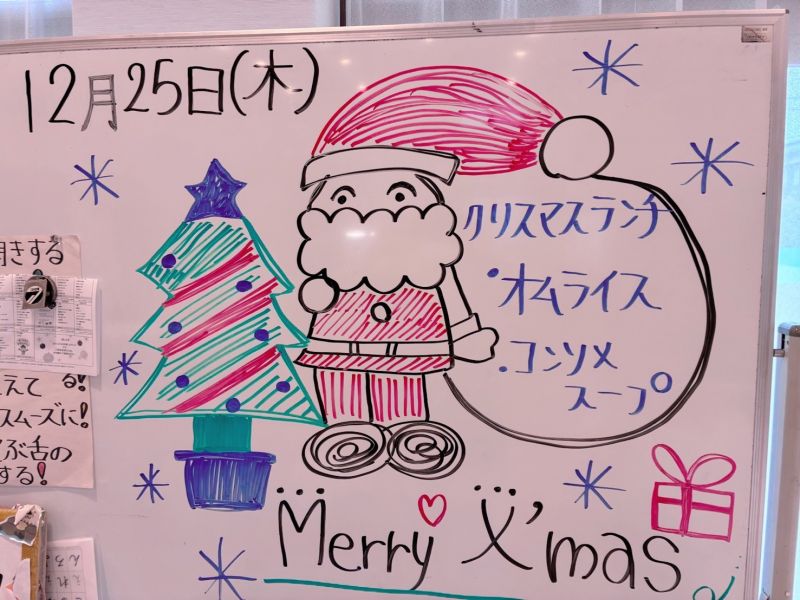 12月25日(木)
クリスマスランチ
・オムライス
・コンソメ
スープ
Merry X'mas
きする
えて る!
スムーズに!
ぶ舌の
する!